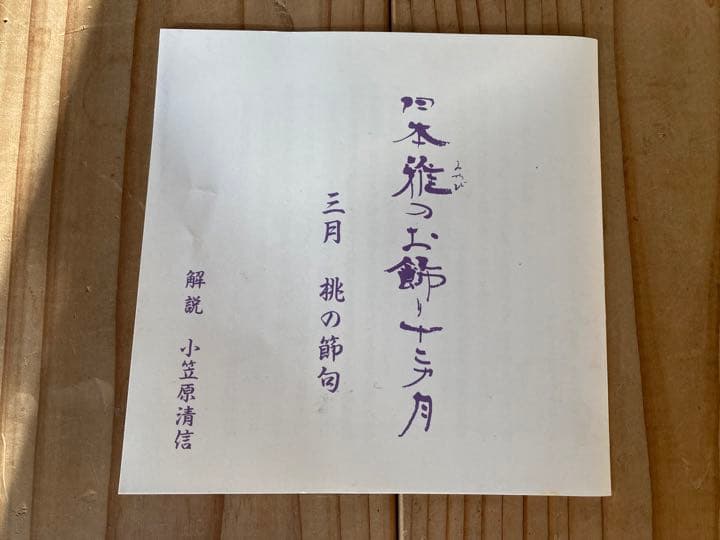 日本雅のお飾り十二ヵ月
みやび
三月 桃の節句
解説 小笠原清信